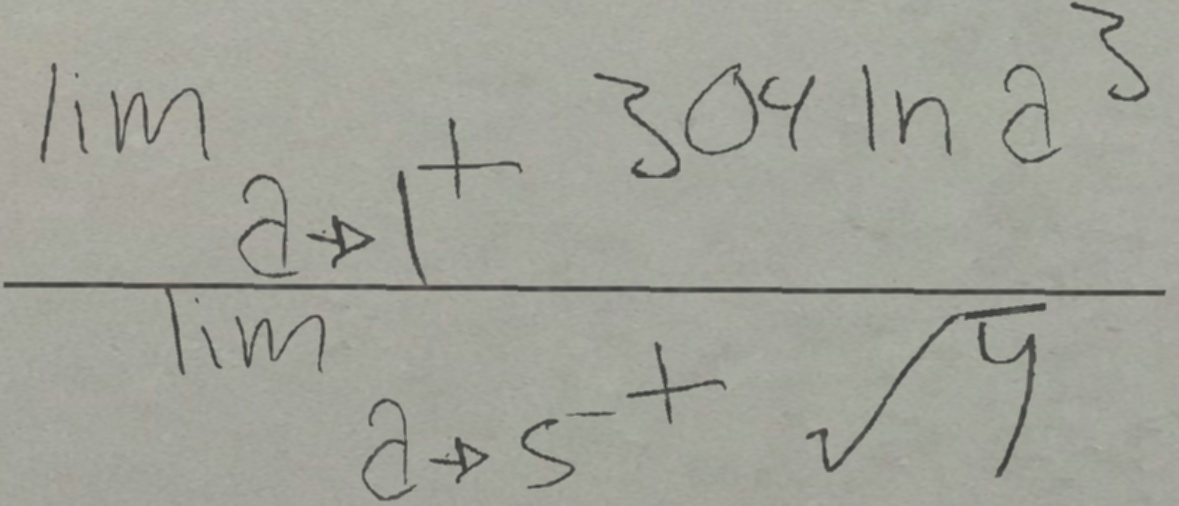 lim a→1⁺ 304 ln a³
lim a→s⁻⁺ √y